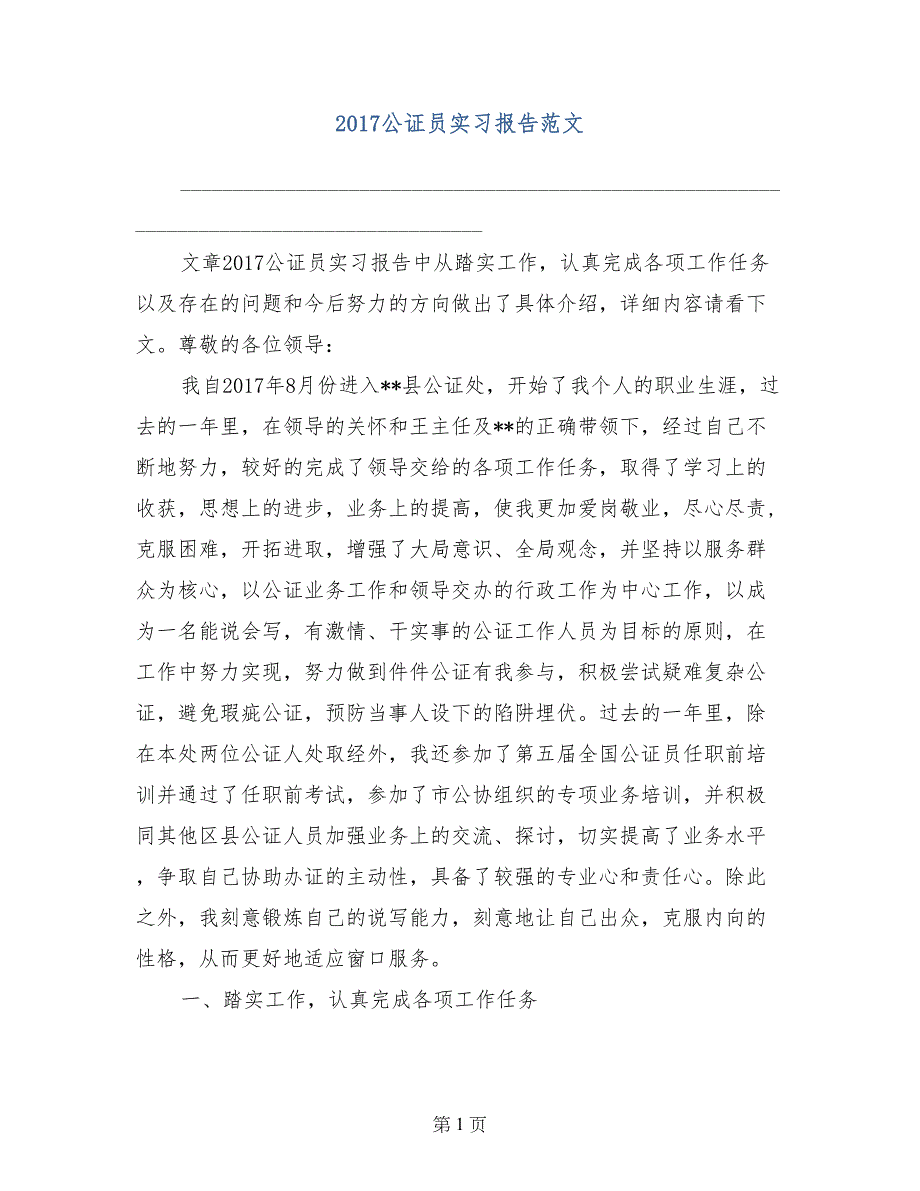 2017公证员实习报告范文
文章2017公证员实习报告中从踏实工作，认真完成各项工作任务
以及存在的问题和今后努力的方向做出了具体介绍，详细内容请看下
文。尊敬的各位领导：
我自2017年8月份进入**县公证处，开始了我个人的职业生涯，过
去的一年里，在领导的关怀和王主任及**的正确带领下，经过自己不
断地努力，较好的完成了领导交给的各项工作任务，取得了学习上的
收获，思想上的进步，业务上的提高，使我更加爱岗敬业，尽心尽责，
克服困难，开拓进取，增强了大局意识、全局观念，并坚持以服务群
众为核心，以公证业务工作和领导交办的行政工作为中心工作，以成
为一名能说会写，有激情、干实事的公证工作人员为目标的原则，在
工作中努力实现，努力做到件件公证有我参与，积极尝试疑难复杂公
证，避免瑕疵公证，预防当事人设下的陷阱埋伏。过去的一年里，除
在本处两位公证人处取经外，我还参加了第五届全国公证员任职前培
训并通过了任职前考试，参加了市公协组织的专项业务培训，并积极
同其他区县公证人员加强业务上的交流、探讨，切实提高了业务水平
，争取自己协助办证的主动性，具备了较强的专业心和责任心。除此
之外，我刻意锻炼自己的说写能力，刻意地让自己出众，克服内向的
性格，从而更好地适应窗口服务。
一、踏实工作，认真完成各项工作任务
第 1 页